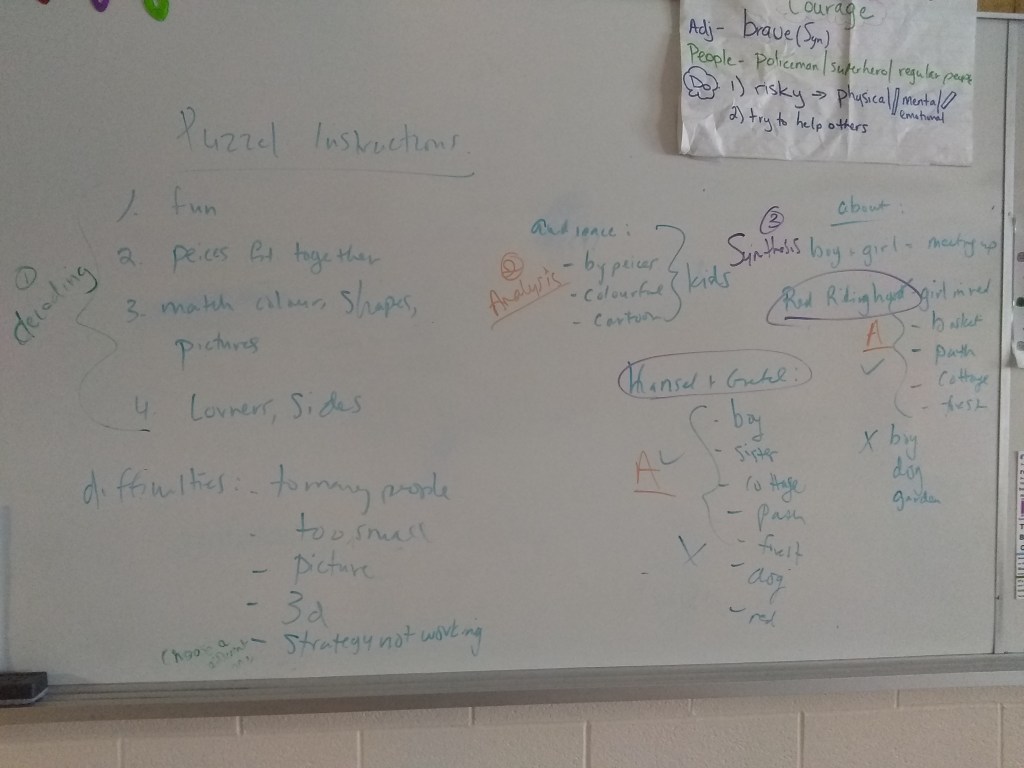 Courage
Adj- brave (Syn)
People - Policeman/superhero/regular people
Do 1) risky → physical//mental//
emotional
2) try to help others
Puzzel Instructions
① decoding
1. fun
2. peices fit together
3. match colour, Shapes,
pictures
4. Corners, Sides
difficulties: - to many people
- too small
- picture
- 3d
- Strategy not working
audience:
② Analysis
- by peices
- Colourful
- Cartoon
kids
③ Synthesis
about:
boy + girl - meeting up
Red Ridinghood girl in red
A ✓
- basket
- path
- Cottage
- forest
X boy
dog
garden
Hansel + Gretel:
A ✓
- boy
- sister
- cottage
- path
- forest
X - dog
- red